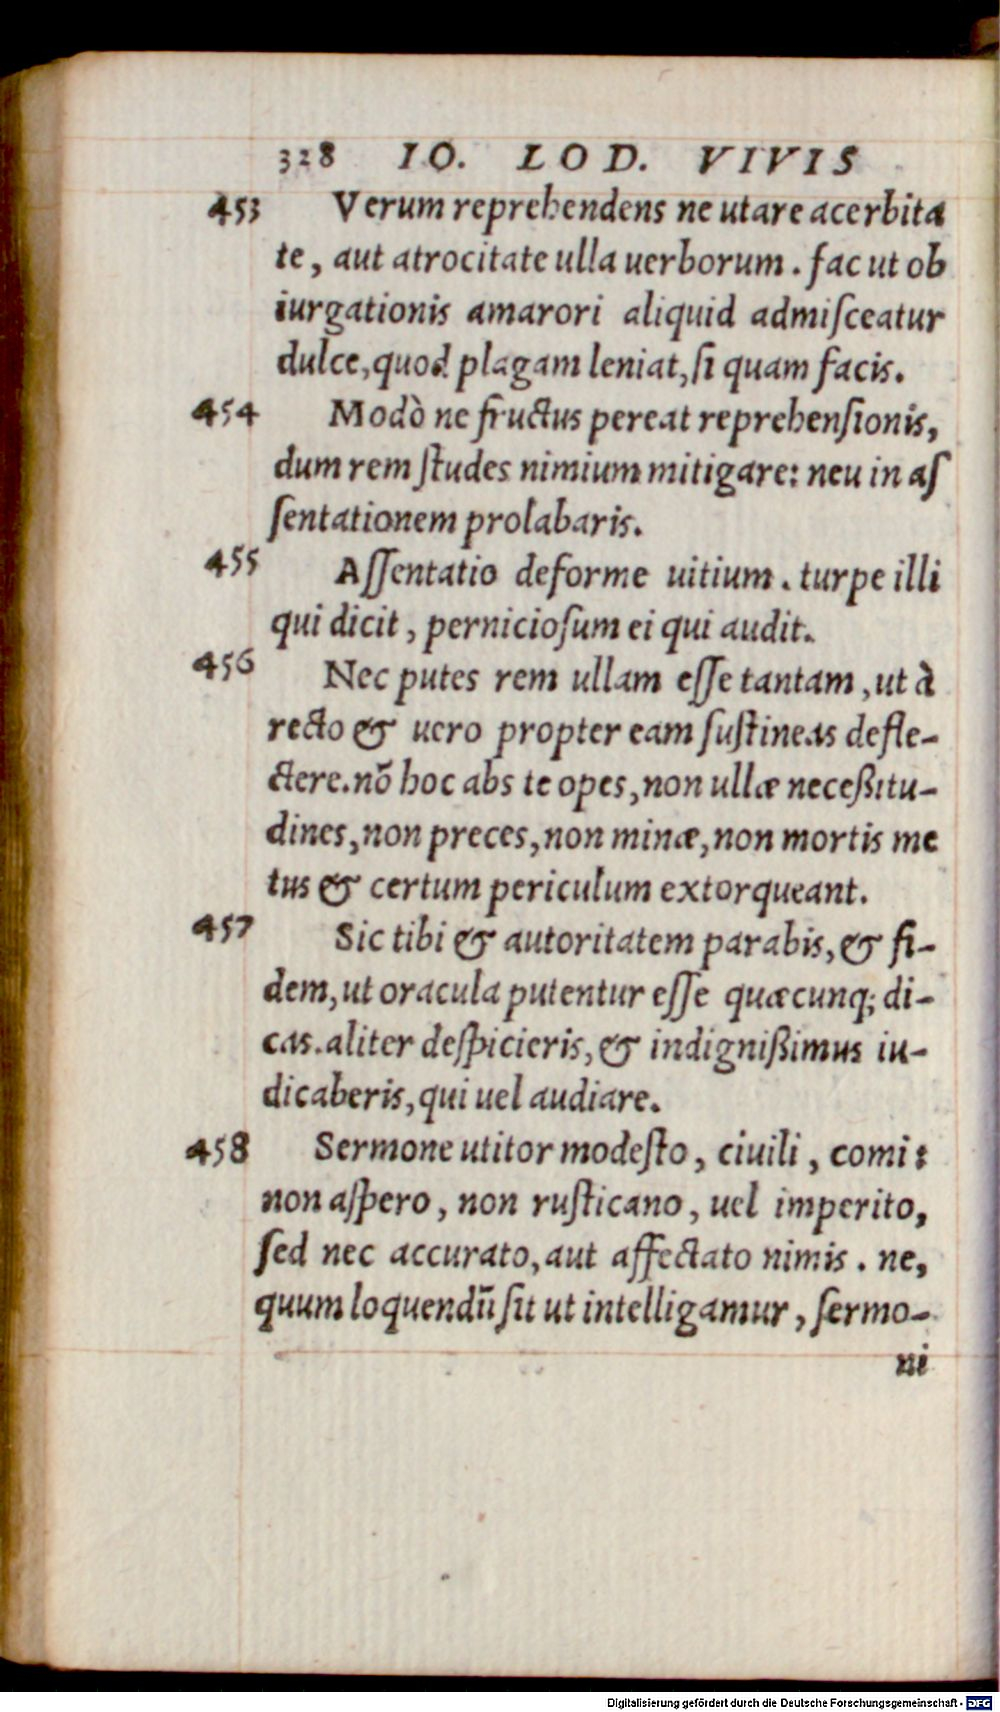 328 IO. LOD. VIVIS
453 Verum reprehendens ne utare acerbita
te, aut atrocitate ulla uerborum. fac ut ob
iurgationis amarori aliquid admiſceatur
dulce, quod plagam leniat, ſi quam facis.
454 Modò ne fructus pereat reprehenſionis,
dum rem ſtudes nimium mitigare: neu in aſ
ſentationem prolabaris.
455 Aſſentatio deforme uitium. turpe illi
qui dicit, pernicioſum ei qui audit.
456 Nec putes rem ullam eſſe tantam, ut à
recto & uero propter eam ſuſtineas defle-
ctere. nō hoc abs te opes, non ullæ neceßitu-
dines, non preces, non minæ, non mortis me
tus & certum periculum extorqueant.
457 Sic tibi & autoritatem parabis, & fi-
dem, ut oracula putentur eſſe quæcunq; di-
cas. aliter deſpicieris, & indignißimus iu-
dicaberis, qui uel audiare.
458 Sermone utitor modeſto, ciuili, comi:
non aſpero, non ruſticano, uel imperito,
ſed nec accurato, aut affectato nimis. ne,
quum loquendū ſit ut intelligamur, ſermo-
ni
Digitalisierung gefördert durch die Deutsche Forschungsgemeinschaft - DFG